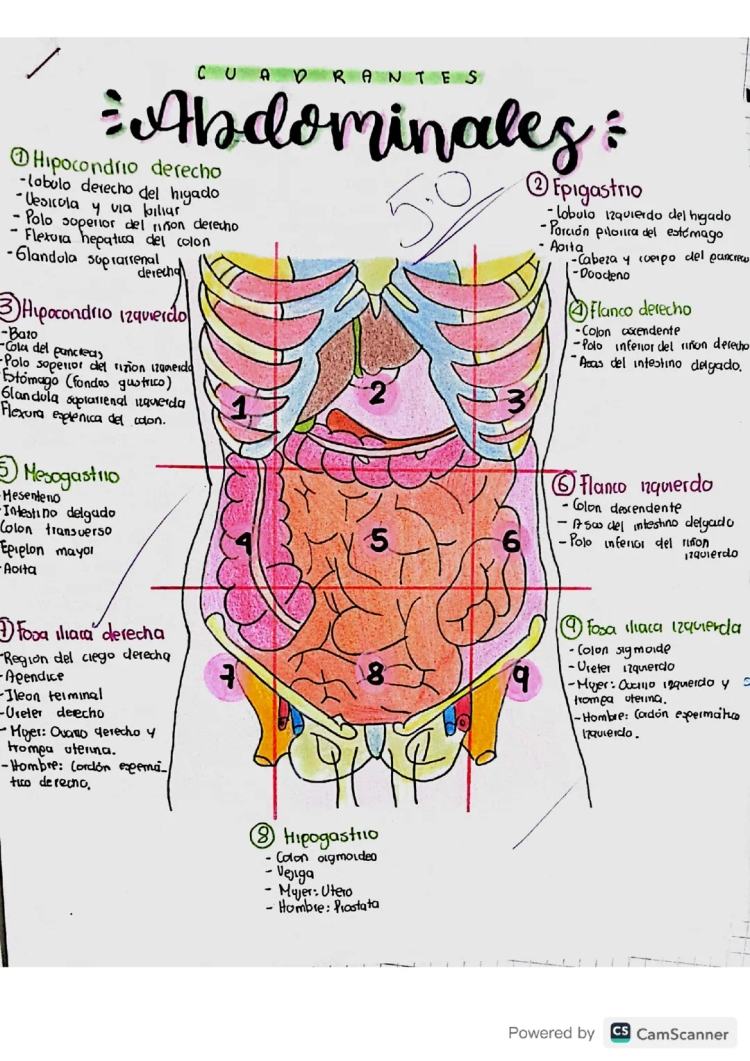 CUADRANTES
Abdominales
5.0
① Hipocondrio derecho
- Lobulo derecho del higado
- Vesicula y via biliar
- Polo superior del riñon derecho
- Flexura hepatica del colon
- Glandula suprarrenal
derecha
② Epigastrio
- Lobulo izquierdo del higado
- Porción pilorica del estómago
- Aorta
- Cabeza y cuerpo del pancreas
- Duodeno
③ Hipocondrio izquierdo
- Bazo
- Cola del pancreas
- Polo superior del riñon izquierdo
Estómago (fondas gustrico)
Glandula suprarrenal izquierda
Flexura esplenica del colon.
④ Flanco derecho
- Colon ascendente
- Polo inferior del riñon derecho
- Asas del intestino delgado.
⑤ Mesogastrio
Mesenterio
- Intestino delgado
Colon transverso
Epiplon mayor
- Aorta
⑥ Flanco izquierdo
- Colon descendente
- Asas del intestino delgado
- Polo inferior del riñon
izquierdo
⑦ Fosa iliaca derecha
- Region del ciego derecha
- Apendice
- Ileon terminal
- Ureter derecho
- Mujer: Ovario derecho y
trompa uterina.
- Hombre: Cordón esperma-
tico derecho.
⑨ Fosa iliaca izquierda
- Colon sigmoide
- Ureter izquierdo
- Mujer: Ovario izquierdo y
trompa uterina.
- Hombre: Cordón espermatico
izquierdo.
1
2
3
4
5
6
7
8
9
⑧ Hipogastrio
- Colon sigmoideo
- Vejiga
- Mujer: Utero
- Hombre: Prostata
Powered by CS CamScanner